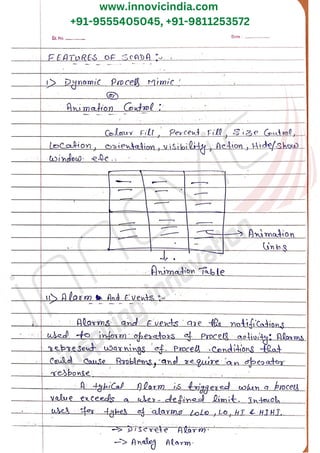 www.innovicindia.com
+91-9555405045, +91-9811253572
Sl. No.
Date
FEATURES OF SCADA :-
I> Dynamic Process Mimic :
(or)
Animation Control :
Colour Fill, Percent Fill, Size Control,
Location, orientation, visibility, Action, Hide/Show
window etc..
Animation
links
Animation Table
II> Alarm And Events :-
Alarms and Events are the notifications
used to inform operators of Process activity: Alarms
represent warnings of Process conditions that
could cause Problems, and require an operator
response.
A typical Alarm is triggered when a process
value exceeds a user-defined limit. Intouch
uses for types of alarms LOLO, LO, HI & HIHI.
-> Discrete Alarm
-> Analog Alarm
innovic